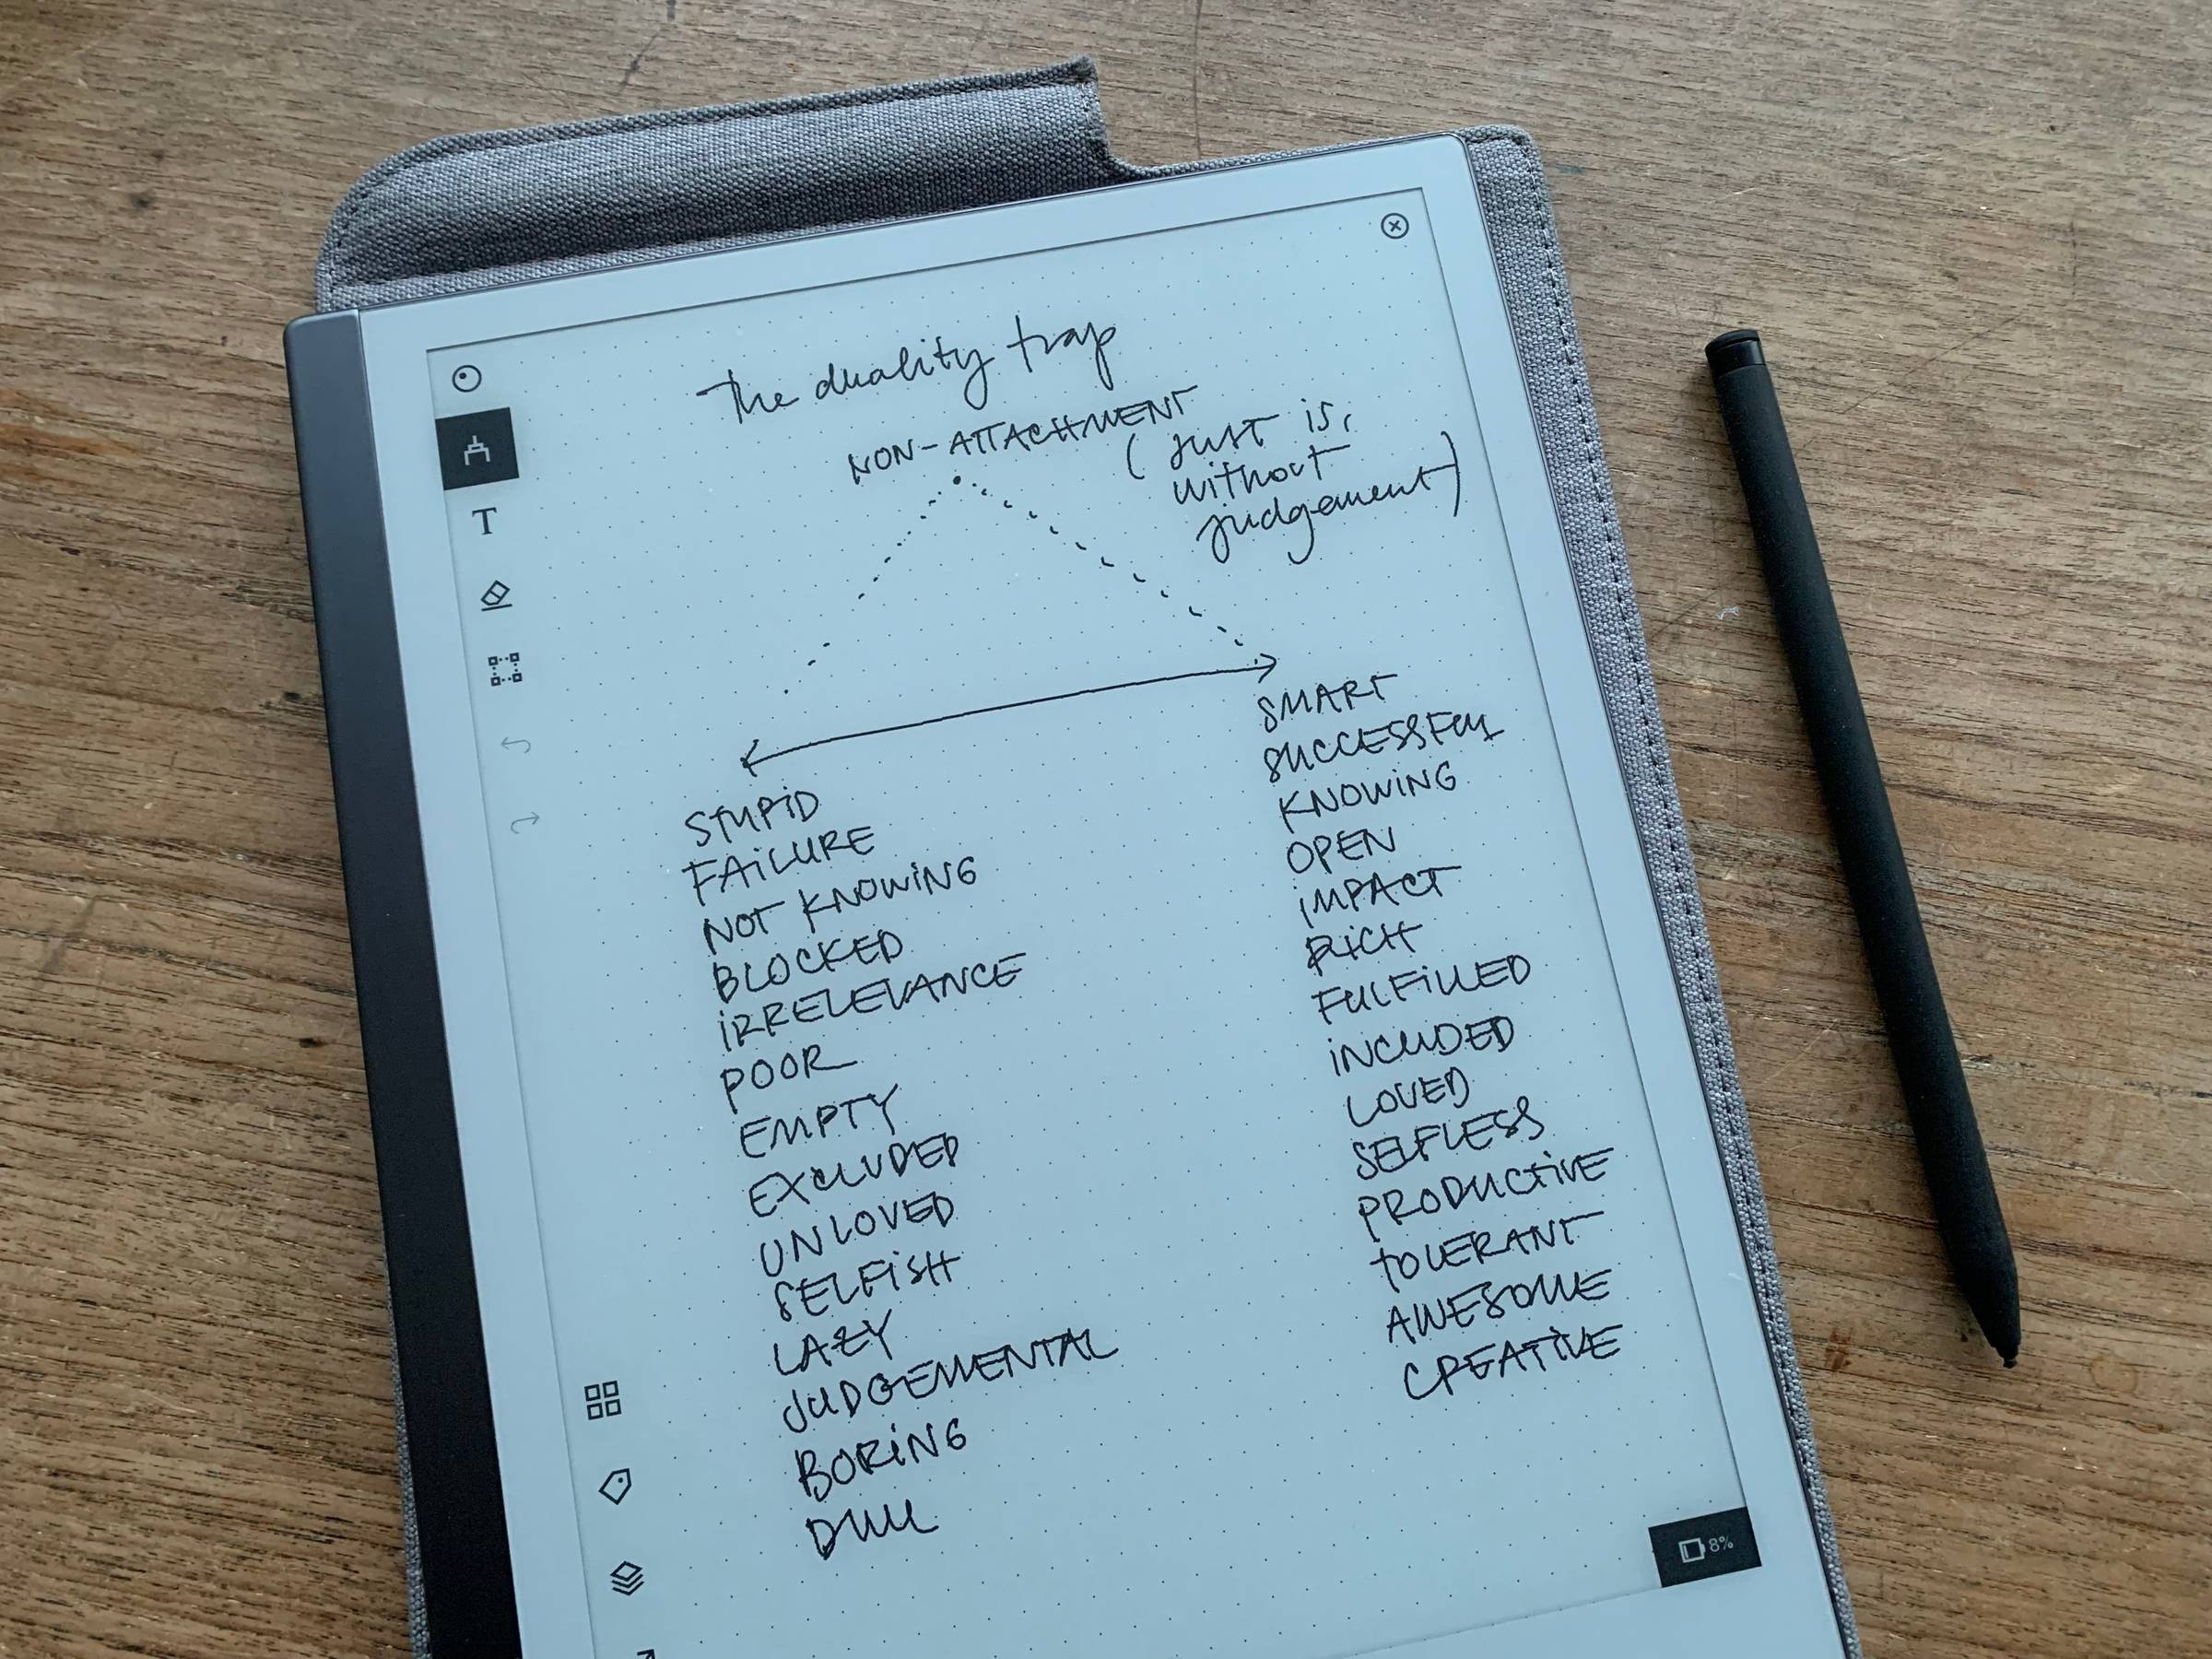 The duality trap
NON-ATTACHMENT
(Just is,
without
judgement)
STUPID
FAILURE
NOT KNOWING
BLOCKED
IRRELEVANCE
POOR
EMPTY
EXCLUDED
UNLOVED
SELFISH
LAZY
JUDGEMENTAL
BORING
DULL
SMART
SUCCESSFUL
KNOWING
OPEN
IMPACT
RICH
FULFILLED
INCLUDED
LOVED
SELFLESS
PRODUCTIVE
TOLERANT
AWESOME
CREATIVE
T
8%